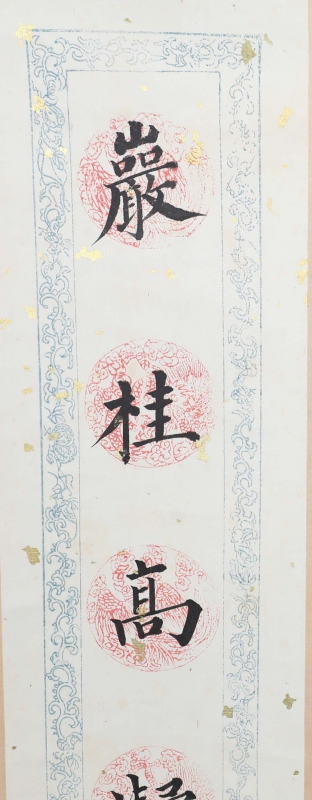 巖桂高